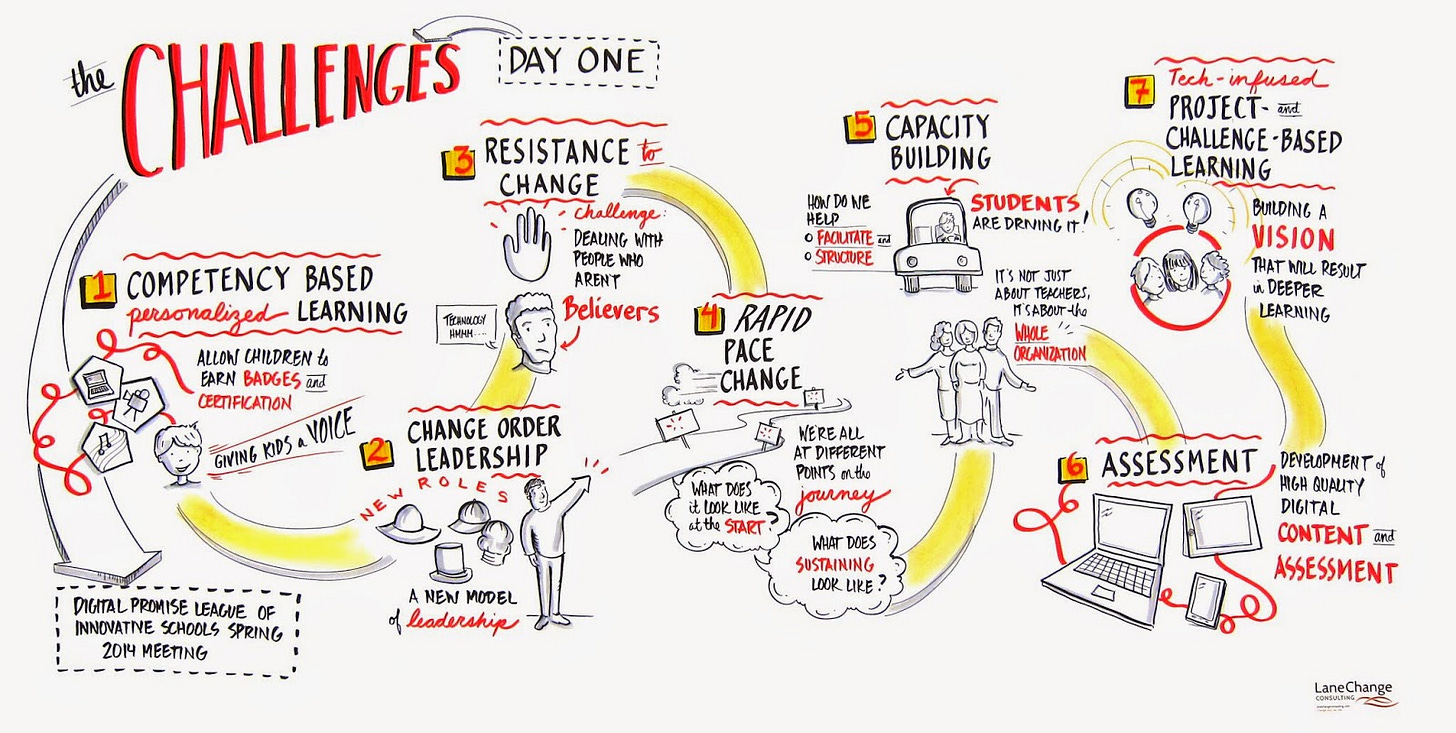 the CHALLENGES
DAY ONE
1 COMPETENCY BASED
personalized LEARNING
ALLOW CHILDREN to
EARN BADGES and
CERTIFICATION
GIVING KIDS a VOICE
DIGITAL PROMISE LEAGUE OF
INNOVATIVE SCHOOLS SPRING
2014 MEETING
2 CHANGE ORDER
LEADERSHIP
NEW ROLES
A NEW MODEL
of leadership
3 RESISTANCE to
CHANGE
challenge:
DEALING WITH
PEOPLE WHO
ARENT
Believers
TECHNOLOGY
HMMM....
4 RAPID
PACE
CHANGE
WE'RE ALL
AT DIFFERENT
POINTS on the
journey
WHAT DOES
it LOOK LIKE
at the START
WHAT DOES
SUSTAINING
LOOK LIKE?
5 CAPACITY
BUILDING
HOW DO WE
HELP
FACILITATE and
STRUCTURE
STUDENTS
ARE DRIVING IT!
IT'S NOT JUST
ABOUT TEACHERS,
IT'S ABOUT the
WHOLE
ORGANIZATION
6 ASSESSMENT
DEVELOPMENT of
HIGH QUALITY
DIGITAL
CONTENT and
ASSESSMENT
7 Tech-infused
PROJECT- and
CHALLENGE-BASED
LEARNING
BUILDING A
VISION
THAT WILL RESULT
in DEEPER
LEARNING
LaneChange
CONSULTING